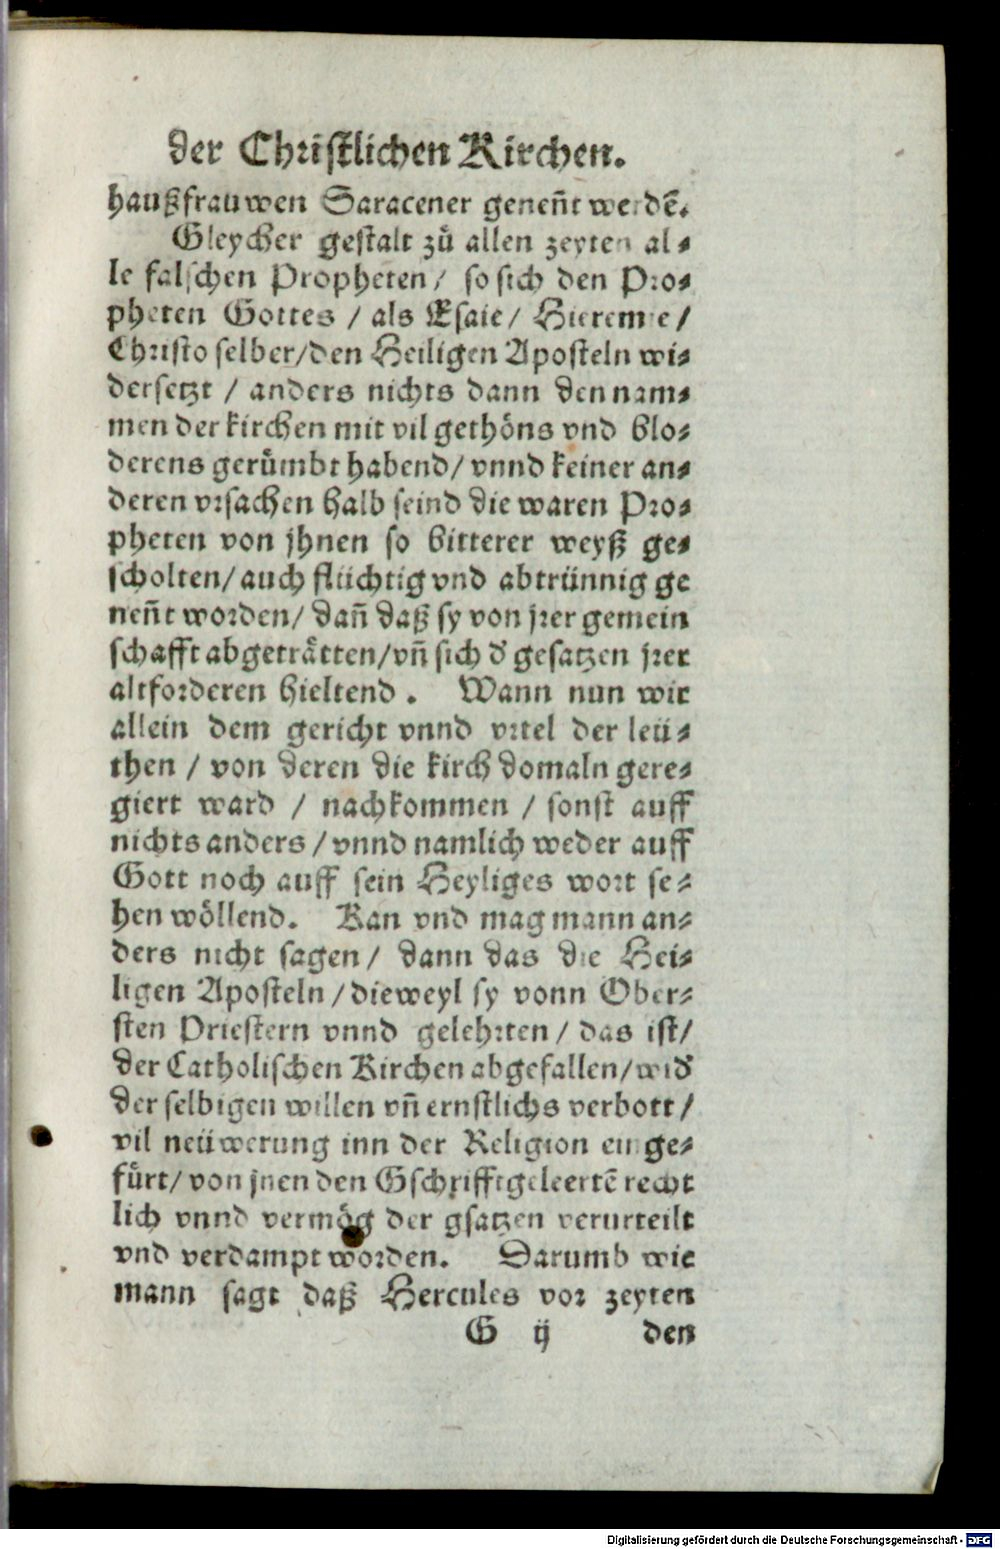 der Christlichen Kirchen.
haußfrauwen Saracener geneñt werdẽ.
Gleycher gestalt zů allen zeyten al⸗
le falschen Propheten/ so sich den Pro⸗
pheten Gottes / als Esaie/ Hieremie/
Christo selber/den Heiligen Aposteln wi⸗
dersetzt / anders nichts dann den nam⸗
men der kirchen mit vil gethöns vnd blo⸗
derens gerůmbt habend/ vnnd keiner an⸗
deren vrsachen halb seind die waren Pro⸗
pheten von jhnen so bitterer weyß ge⸗
scholten/ auch flüchtig vnd abtrünnig ge
neñt worden/ dañ daß sy von jrer gemein
schafft abgetråtten/vñ sich d' gesatzen jrer
altforderen hieltend. Wann nun wir
allein dem gericht vnnd vrtel der leü⸗
then / von deren die kirch domaln gere⸗
giert ward / nachkommen / sonst auff
nichts anders / vnnd namlich weder auff
Gott noch auff sein Heyliges wort se⸗
hen wöllend. Kan vnd mag mann an⸗
ders nicht sagen/ dann das die Hei⸗
ligen Aposteln / dieweyl sy vonn Ober⸗
sten Priestern vnnd gelehrten / das ist/
der Catholischen Kirchen abgefallen/ wid'
der selbigen willen vñ ernstlichs verbott /
vil neüwerung inn der Religion einge⸗
fürt/ von jnen den Gschrifftgeleertẽ recht
lich vnnd vermög der gsatzen verurteilt
vnd verdampt worden. Darumb wie
mann sagt daß Hercules vor zeyten
G ij den
Digitalisierung gefördert durch die Deutsche Forschungsgemeinschaft - DFG